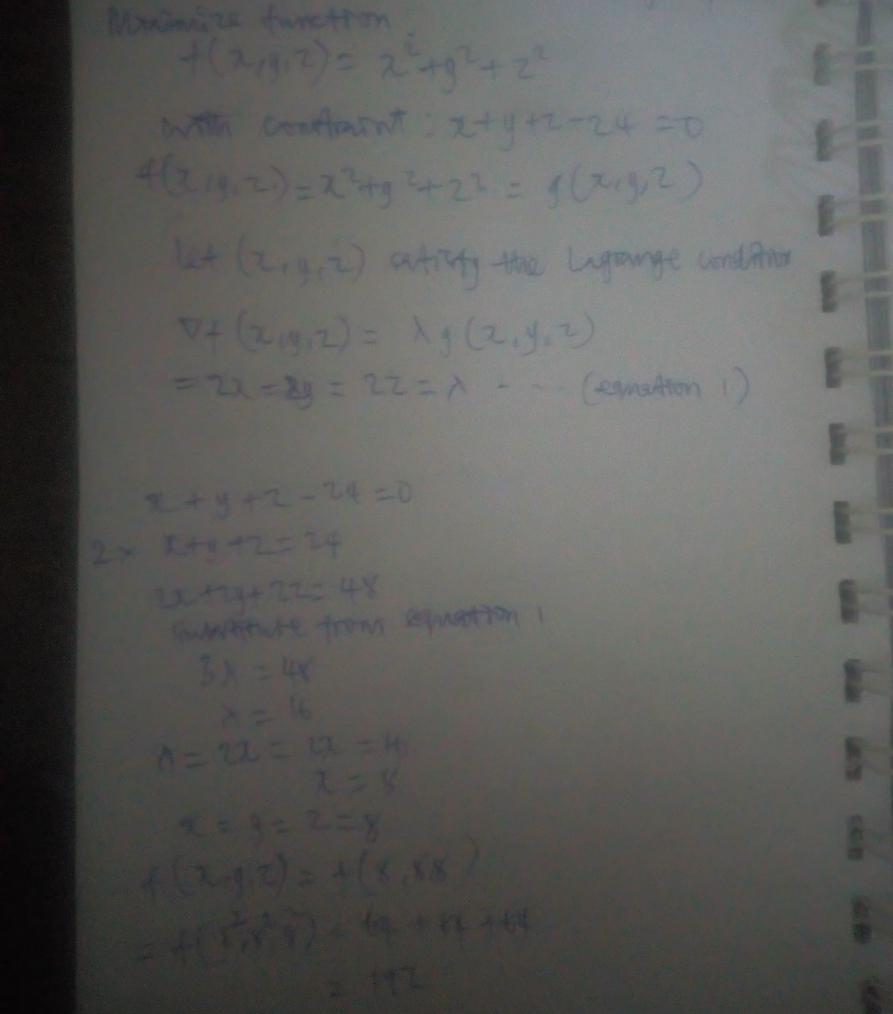 Minimize function
f(x,y,z) = x²+y²+z²
with constraint: x+y+z-24 =0
f(x,y,z)=x²+y²+z² = g(x,y,z)
let (x,y,z) satisfy the Lagrange condition
∇f(x,y,z) = λg(x,y,z)
= 2x=2y=2z=λ - - - (equation 1)
x+y+z-24=0
2× x+y+z=24
2x+2y+2z=48
substitute from equation 1
3λ = 48
λ = 16
λ = 2x = 2x =
x = 8
x = y = z = 8
f(x,y,z) = f(8,88)
= 64 + 64 +64
= 192